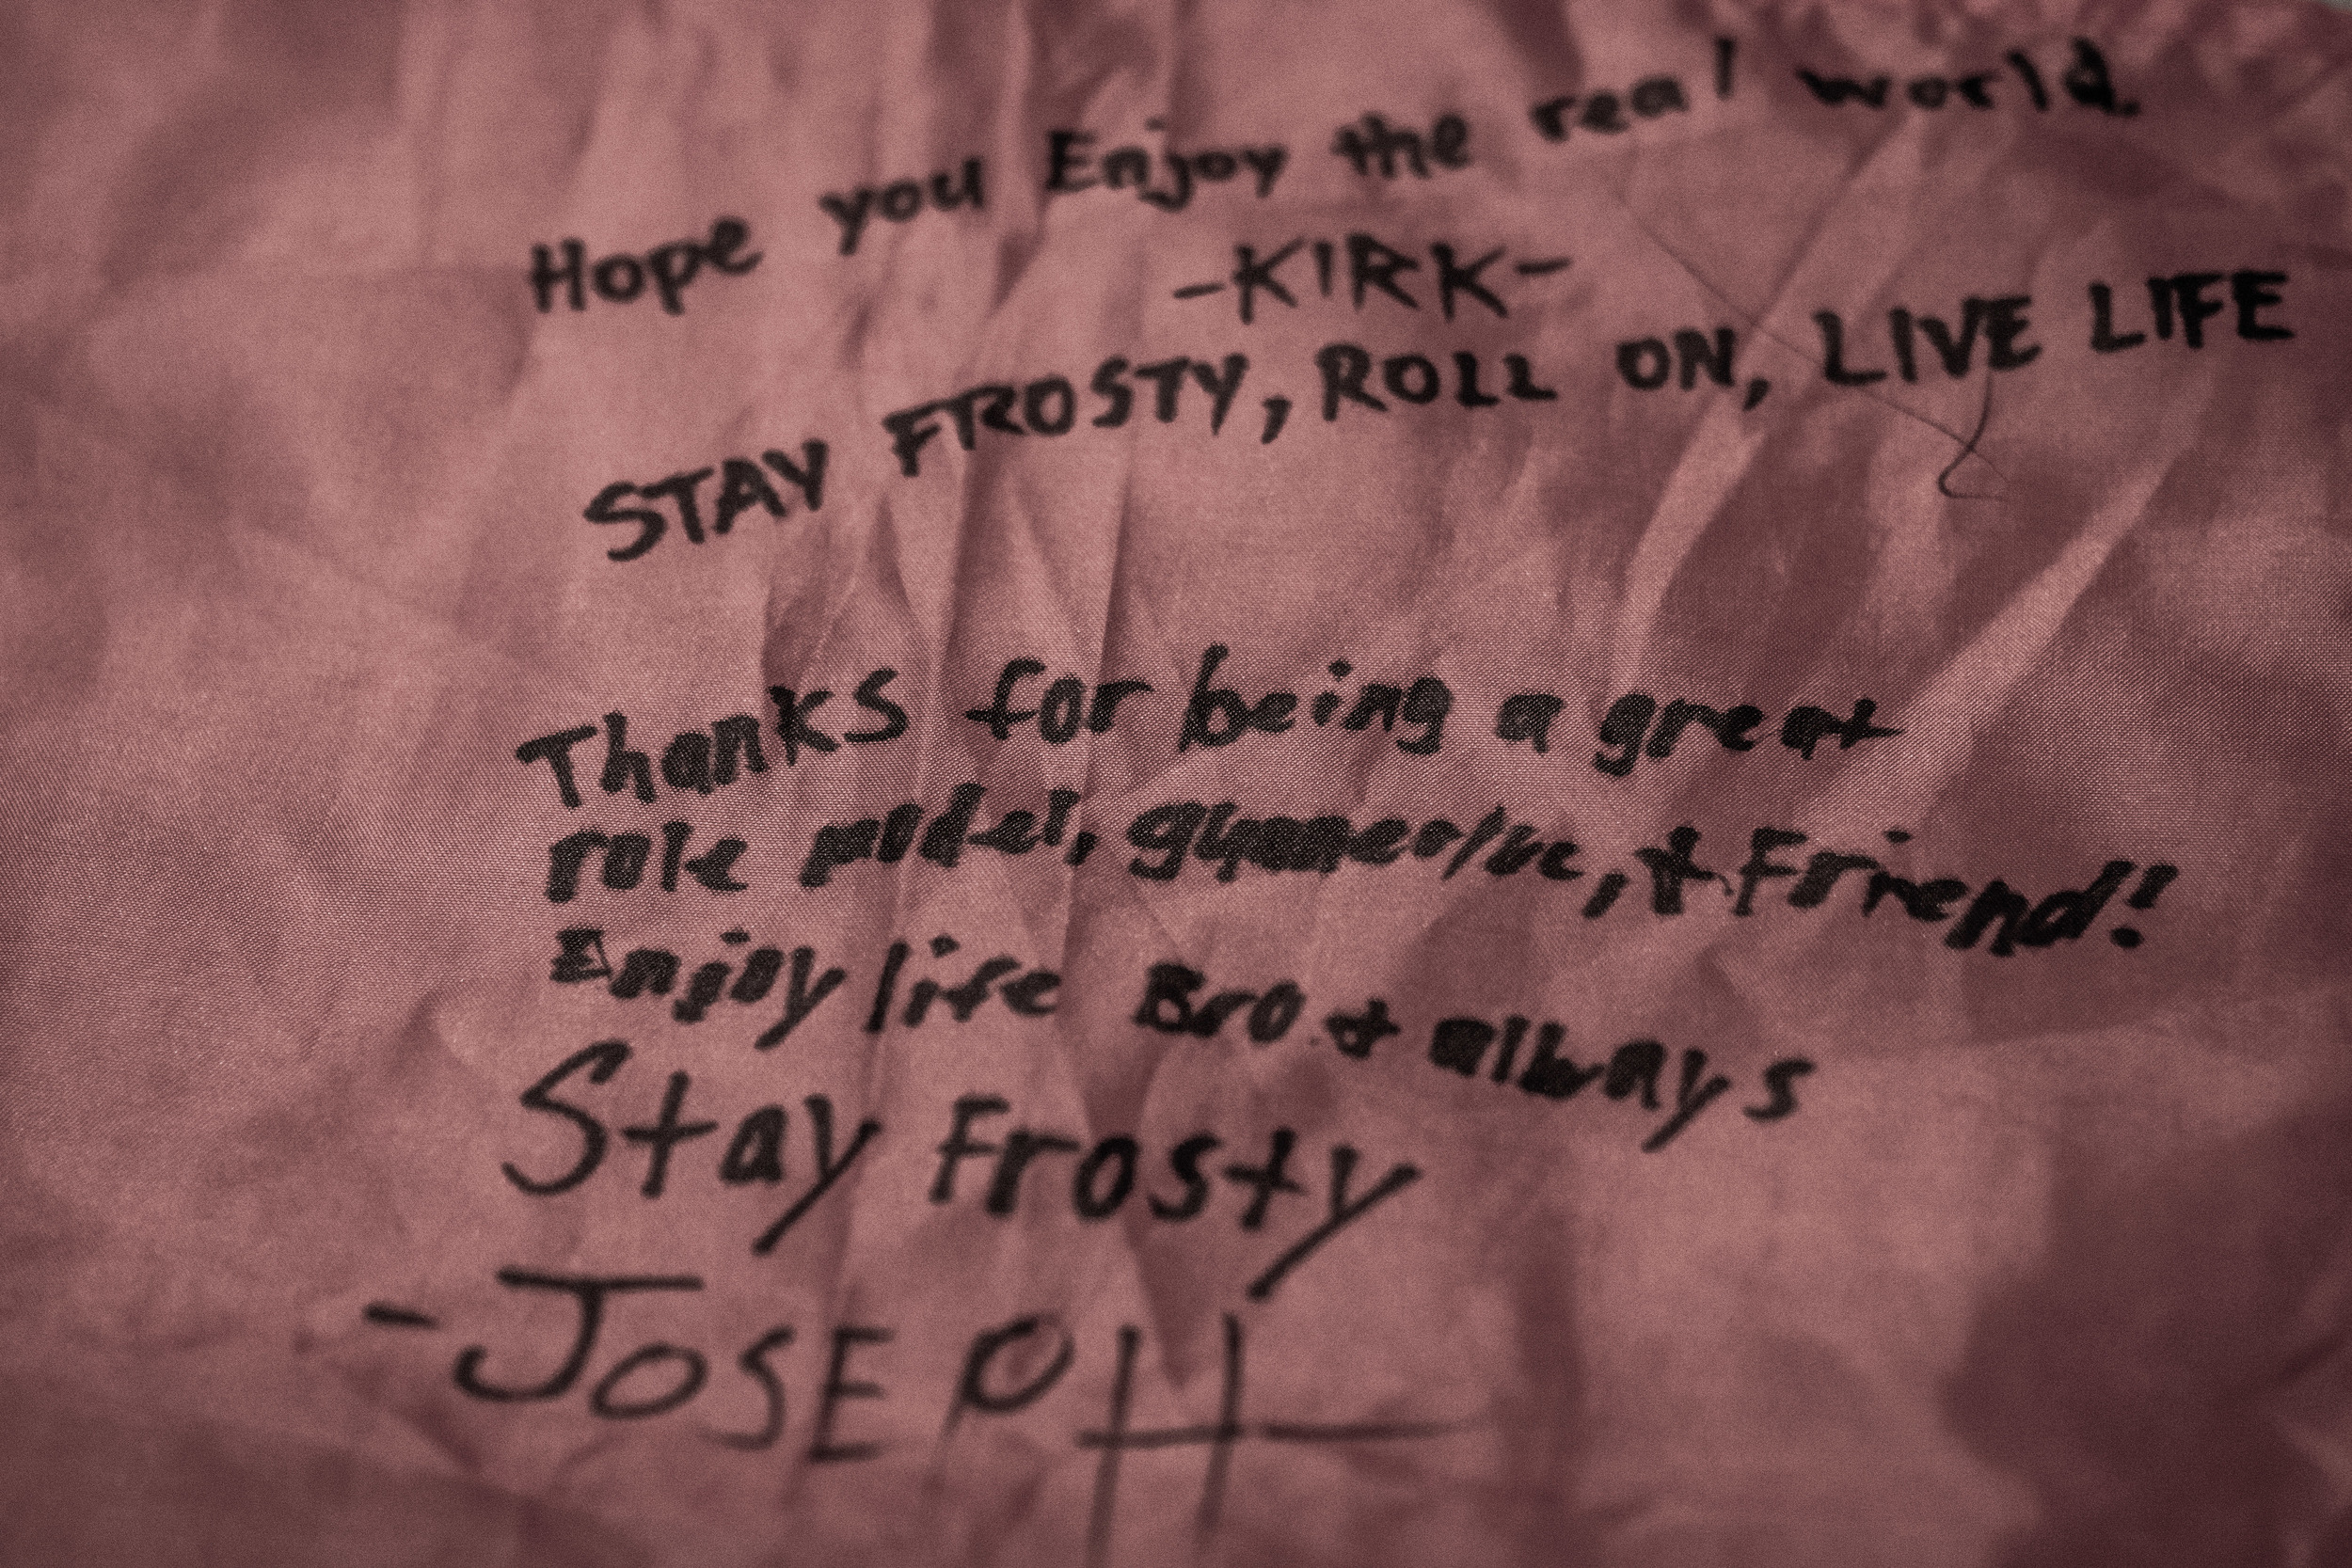 Hope you Enjoy the real world.
-KIRK-
STAY FROSTY, ROLL ON, LIVE LIFE
Thanks for being a great
role model, & Friend!
Enjoy life Bro & always
Stay Frosty
-JOSEPH